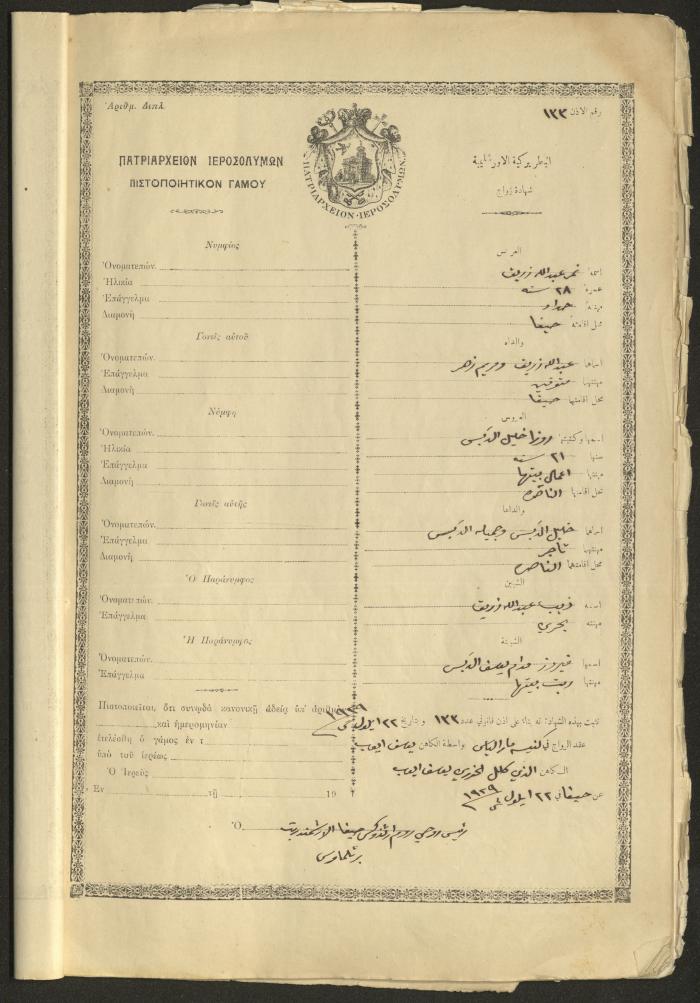 Ἀριθμ. Διπλ.
ΠΑΤΡΙΑΡΧΕΙΟΝ ΙΕΡΟΣΟΛΥΜΩΝ
ΠΙΣΤΟΠΟΙΗΤΙΚΟΝ ΓΑΜΟΥ
ΠΑΤΡΙΑΡΧΕΙΟΝ·ΙΕΡΟΣΟΛΥΜΩΝ
رقم الاذن ١٣٣
البطريركية الاورشليمية
شهادة زواج
Νυμφίος
Ὀνοματεπών.
Ἡλικία
Ἐπάγγελμα
Διαμονὴ
Γονεῖς αὐτοῦ
Ὀνοματεπών.
Ἐπάγγελμα
Διαμονὴ
Νύμφη
Ὀνοματεπών.
Ἡλικία
Ἐπάγγελμα
Διαμονὴ
Γονεῖς αὐτῆς
Ὀνοματεπών.
Ἐπάγγελμα
Διαμονὴ
Ὁ Παράνυμφος
Ὀνοματεπών.
Ἐπάγγελμα
Ἡ Παράνυμφος
Ὀνοματεπών.
Ἐπάγγελμα
Πιστοποιεῖται, ὅτι συνῳδὰ κανονικῇ ἀδείᾳ ὑπ' ἀριθμὸν
καὶ ἡμερομηνίαν
ἐτελέσθη ὁ γάμος ἐν τ
ὑπὸ τοῦ ἱερέως
Ὁ Ἱερεὺς
Ἐν τῇ 19
Ὁ
العريس
اسمه نمر عبدالله زريق
عمره ٢٨ سنة
مهنته حداد
محل اقامته حيفا
والداه
اسماهما عبدالله زريق ومريم زهر
مهنتهما متوفين
محل اقامتهما حيفا
العروس
اسمها وكنيتها روزا خليل الدبس
سنها ٢١ سنة
مهنتها اعمال بيتها
محل اقامتها الناصره
والداها
اسماهما خليل الدبس وجميله الدبس
مهنتهما تاجر
محل اقامتهما الناصره
الشبين
اسمه ذيب عبدالله زريق
مهنته بحري
الشبينة
اسمها فيروز مدام يوسف الدبس
مهنتها ربت بيتها
ثابت بهذه الشهادة انه بناء على اذن قانوني عدد ١٣٣ وبتاريخ ٢٢ ايلول ١٩٢٩
عقد الزواج في كنيسة مار الياس بواسطة الكاهن يوسف ايوب
الكاهن الذي كلل الخوري يوسف ايوب
عن حيفا في ٢٢ ايلول ١٩٢٩
رئيس روحي روم ارثوذكس حيفا الارشمندريت